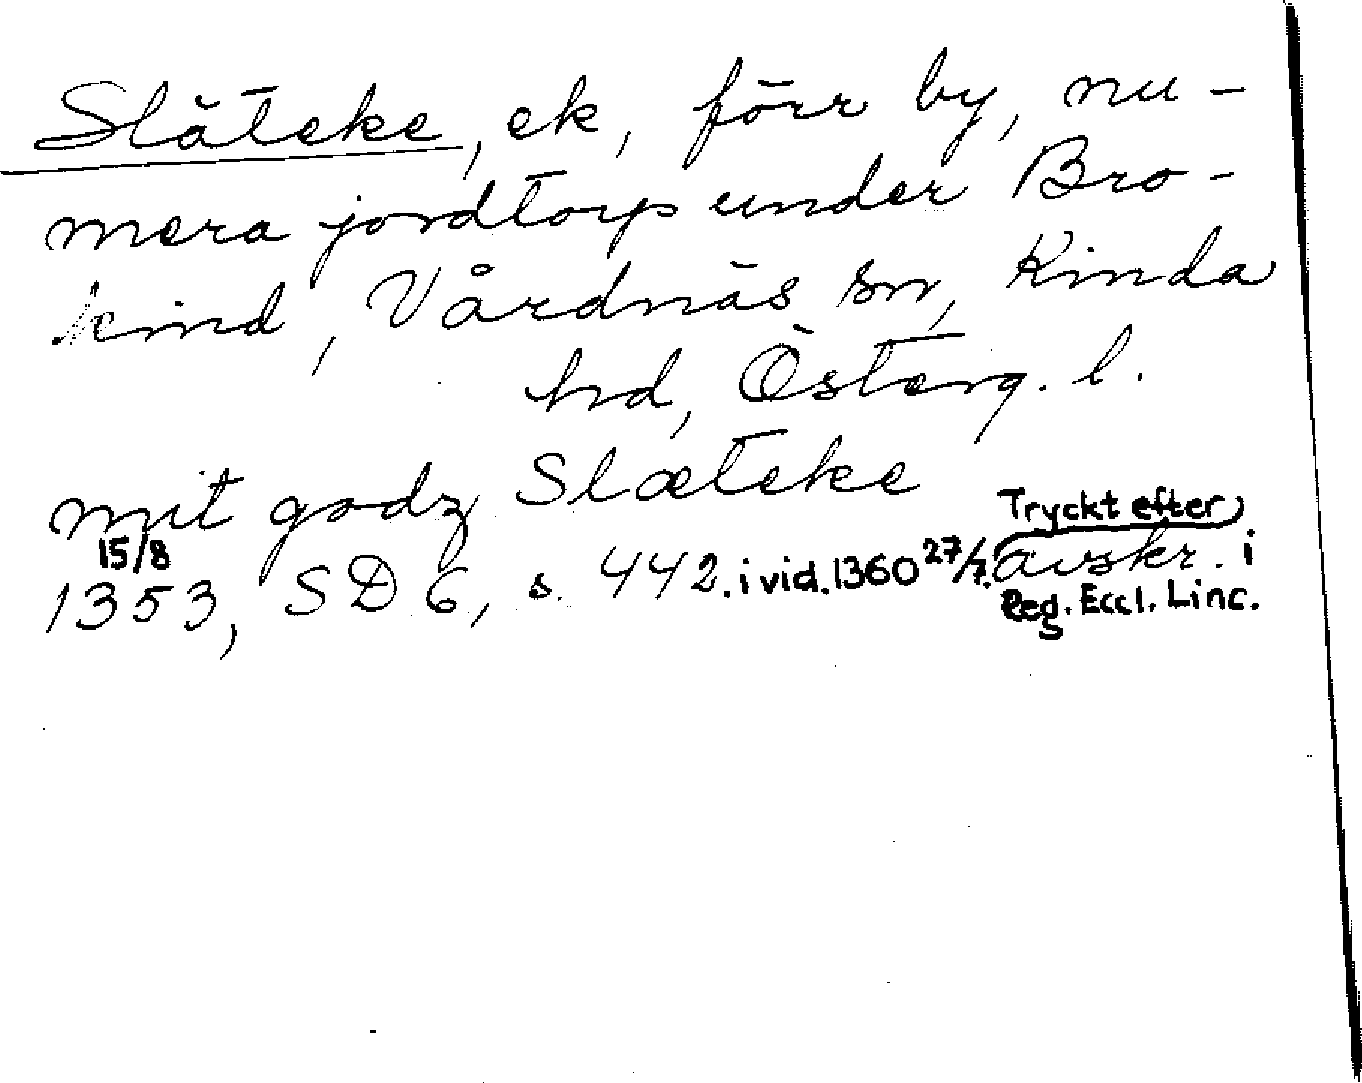 Släteke, ek, förr by, nu-
mera jordtorp under Bro-
kind, Vårdnäs sn, Kinda
hd, Österg. l.
mit godz Slæteke
15/8 1353, SD 6, s. 442. i vid. 1360 27/7. Tryckt efter avskr. i
Reg. Eccl. Linc.